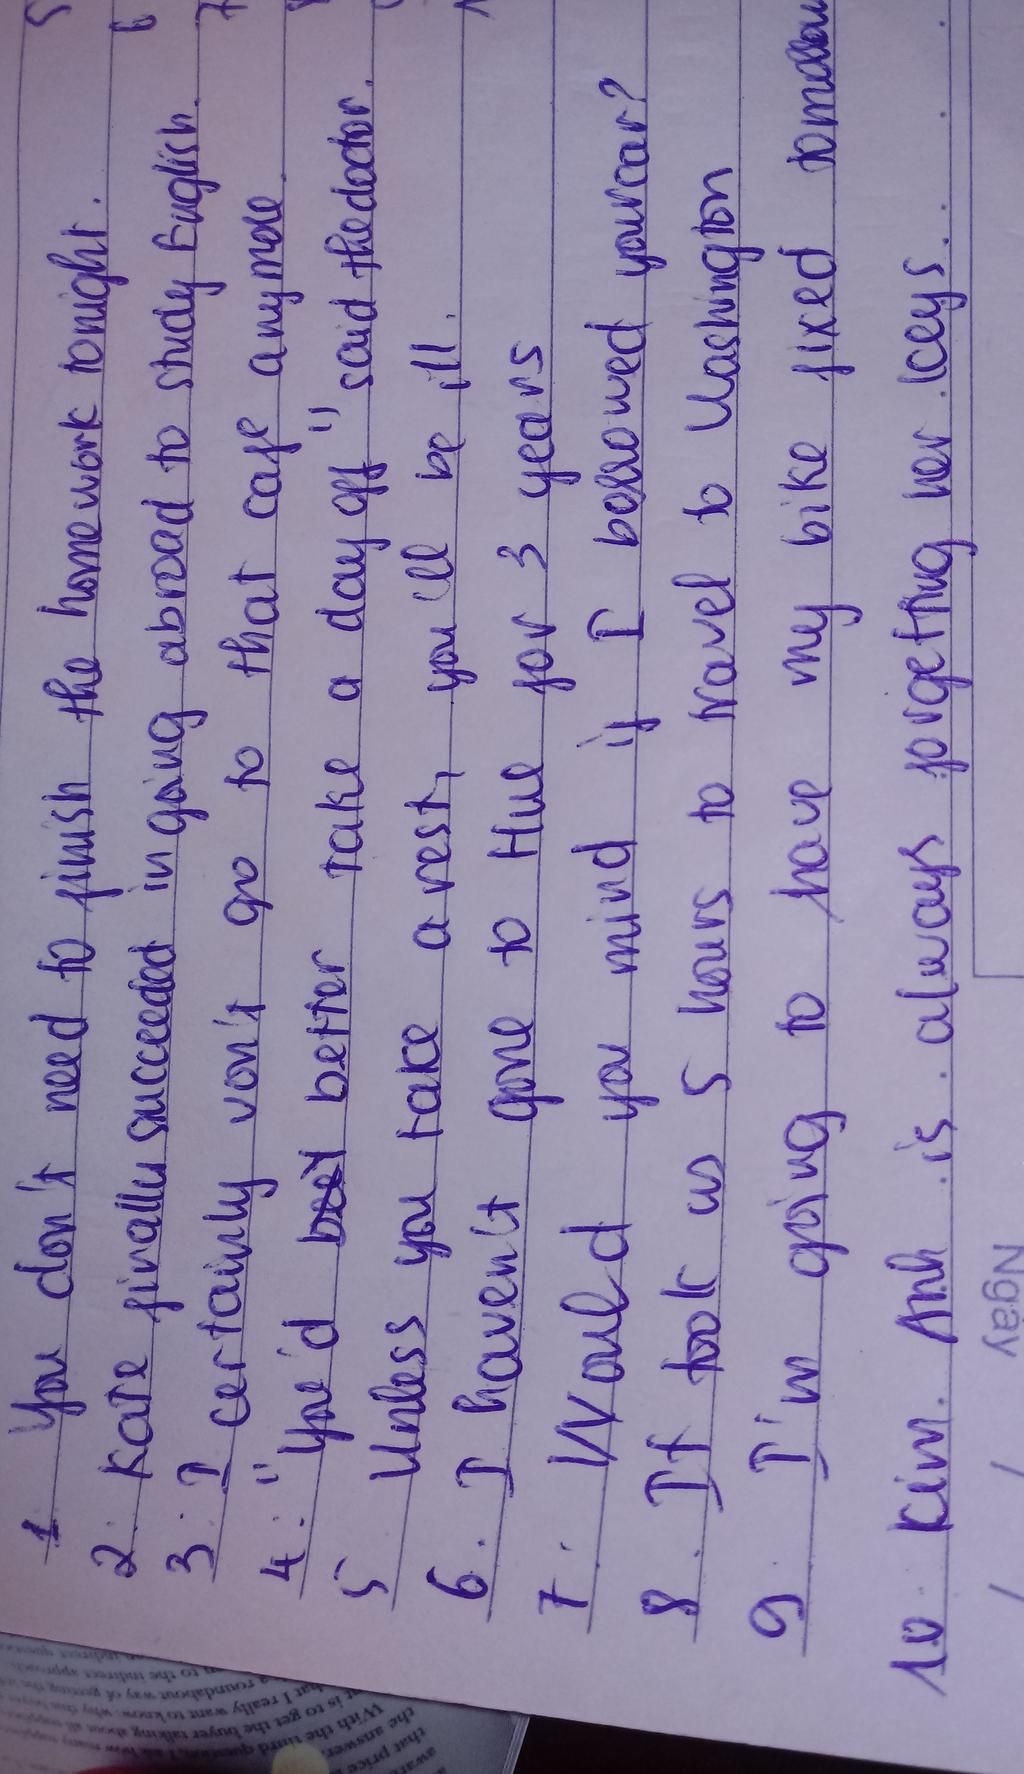 1 You don't need to finish the homework tonight.
2. Kate finally succeeded in going abroad to study English.
3. I certainly von't go to that cafe anymore.
4. "You'd better take a day off" said the doctor.
5 Unless you take a rest, you'll be ill.
6. I haven't gone to Hue for 3 years
7. Would you mind if I borrowed your car?
8. It took us 5 hours to travel to Washington
9. I'm going to have my bike fixed
10. Kim Anh is always forgetting her keys.
Ngày / /